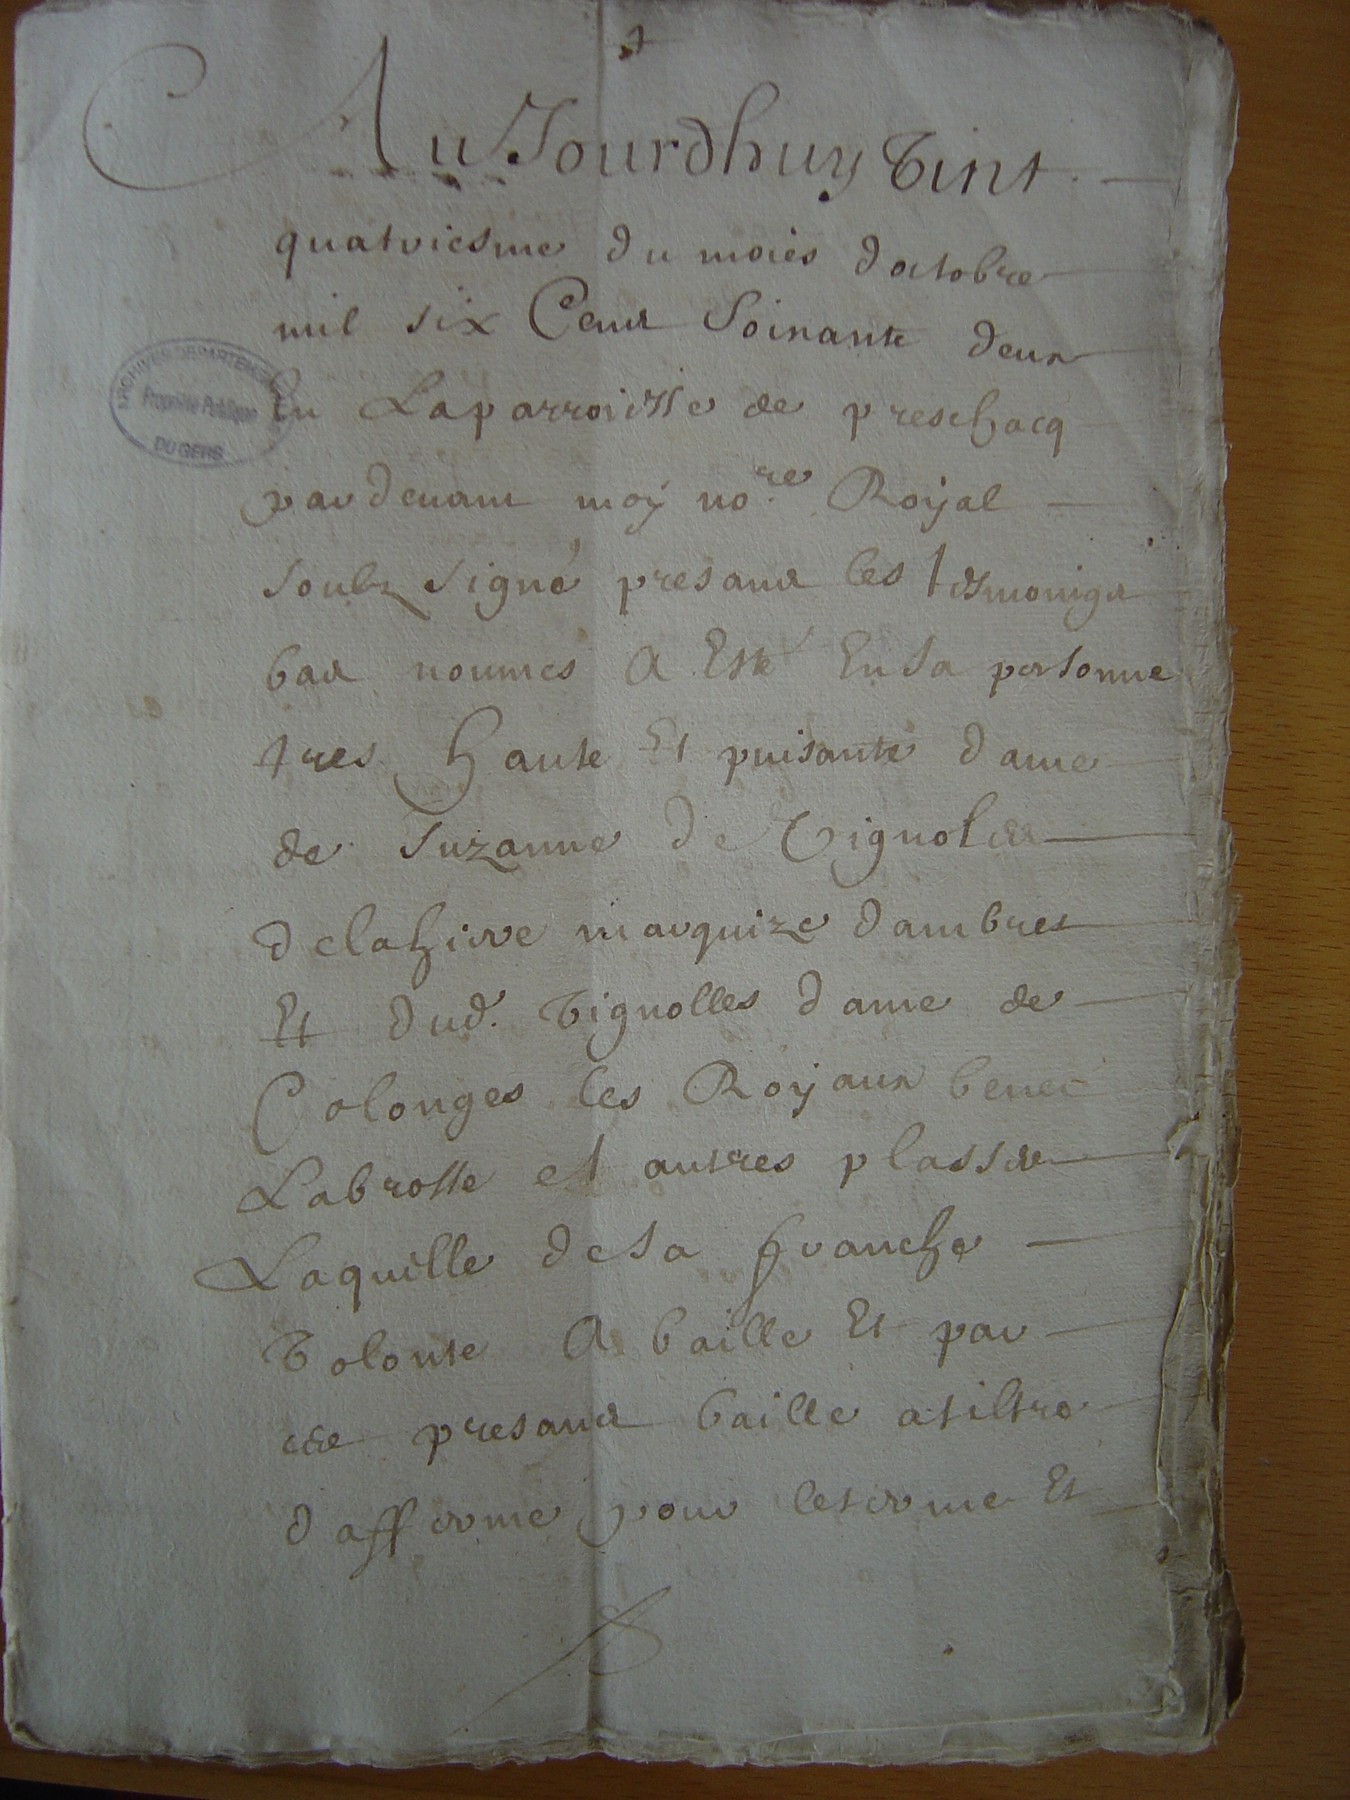 AuJourdhuy Vint
quatriesme du mois doctobre
mil six Cent Soixante deux
En Laparroisse de preschacq
pardevant moy no.re Royal
Soubz signé presant les tesmoings
bas nommes A Esté En sa personne
tres haute Et puisante dame
de Suzanne de Vignoles
de lahirre marquize dambres
Et dud. Vignolles dame de
Colonges les Royaux
Labrosse et autres plasses
Laquelle de sa franche
Volonte A baille Et par
ces presant baille a tiltre
dafferme pour le terme Et
ARCHIVES DEPARTEMENTALES
Propriété Publique
DU GERS